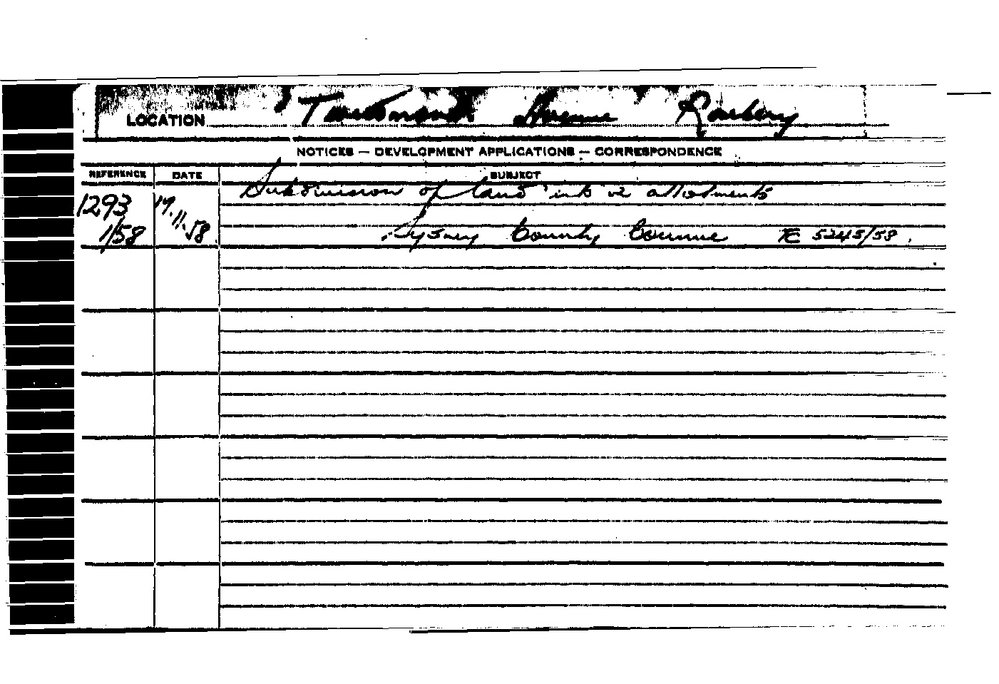 LOCATION Tweedmouth Avenue Rosebery
NOTICES — DEVELOPMENT APPLICATIONS — CORRESPONDENCE
REFERENCE DATE SUBJECT
Subdivision of land into 2 allotments
1293 19.11.58
1/58 Sydney County Council TC 5245/58.